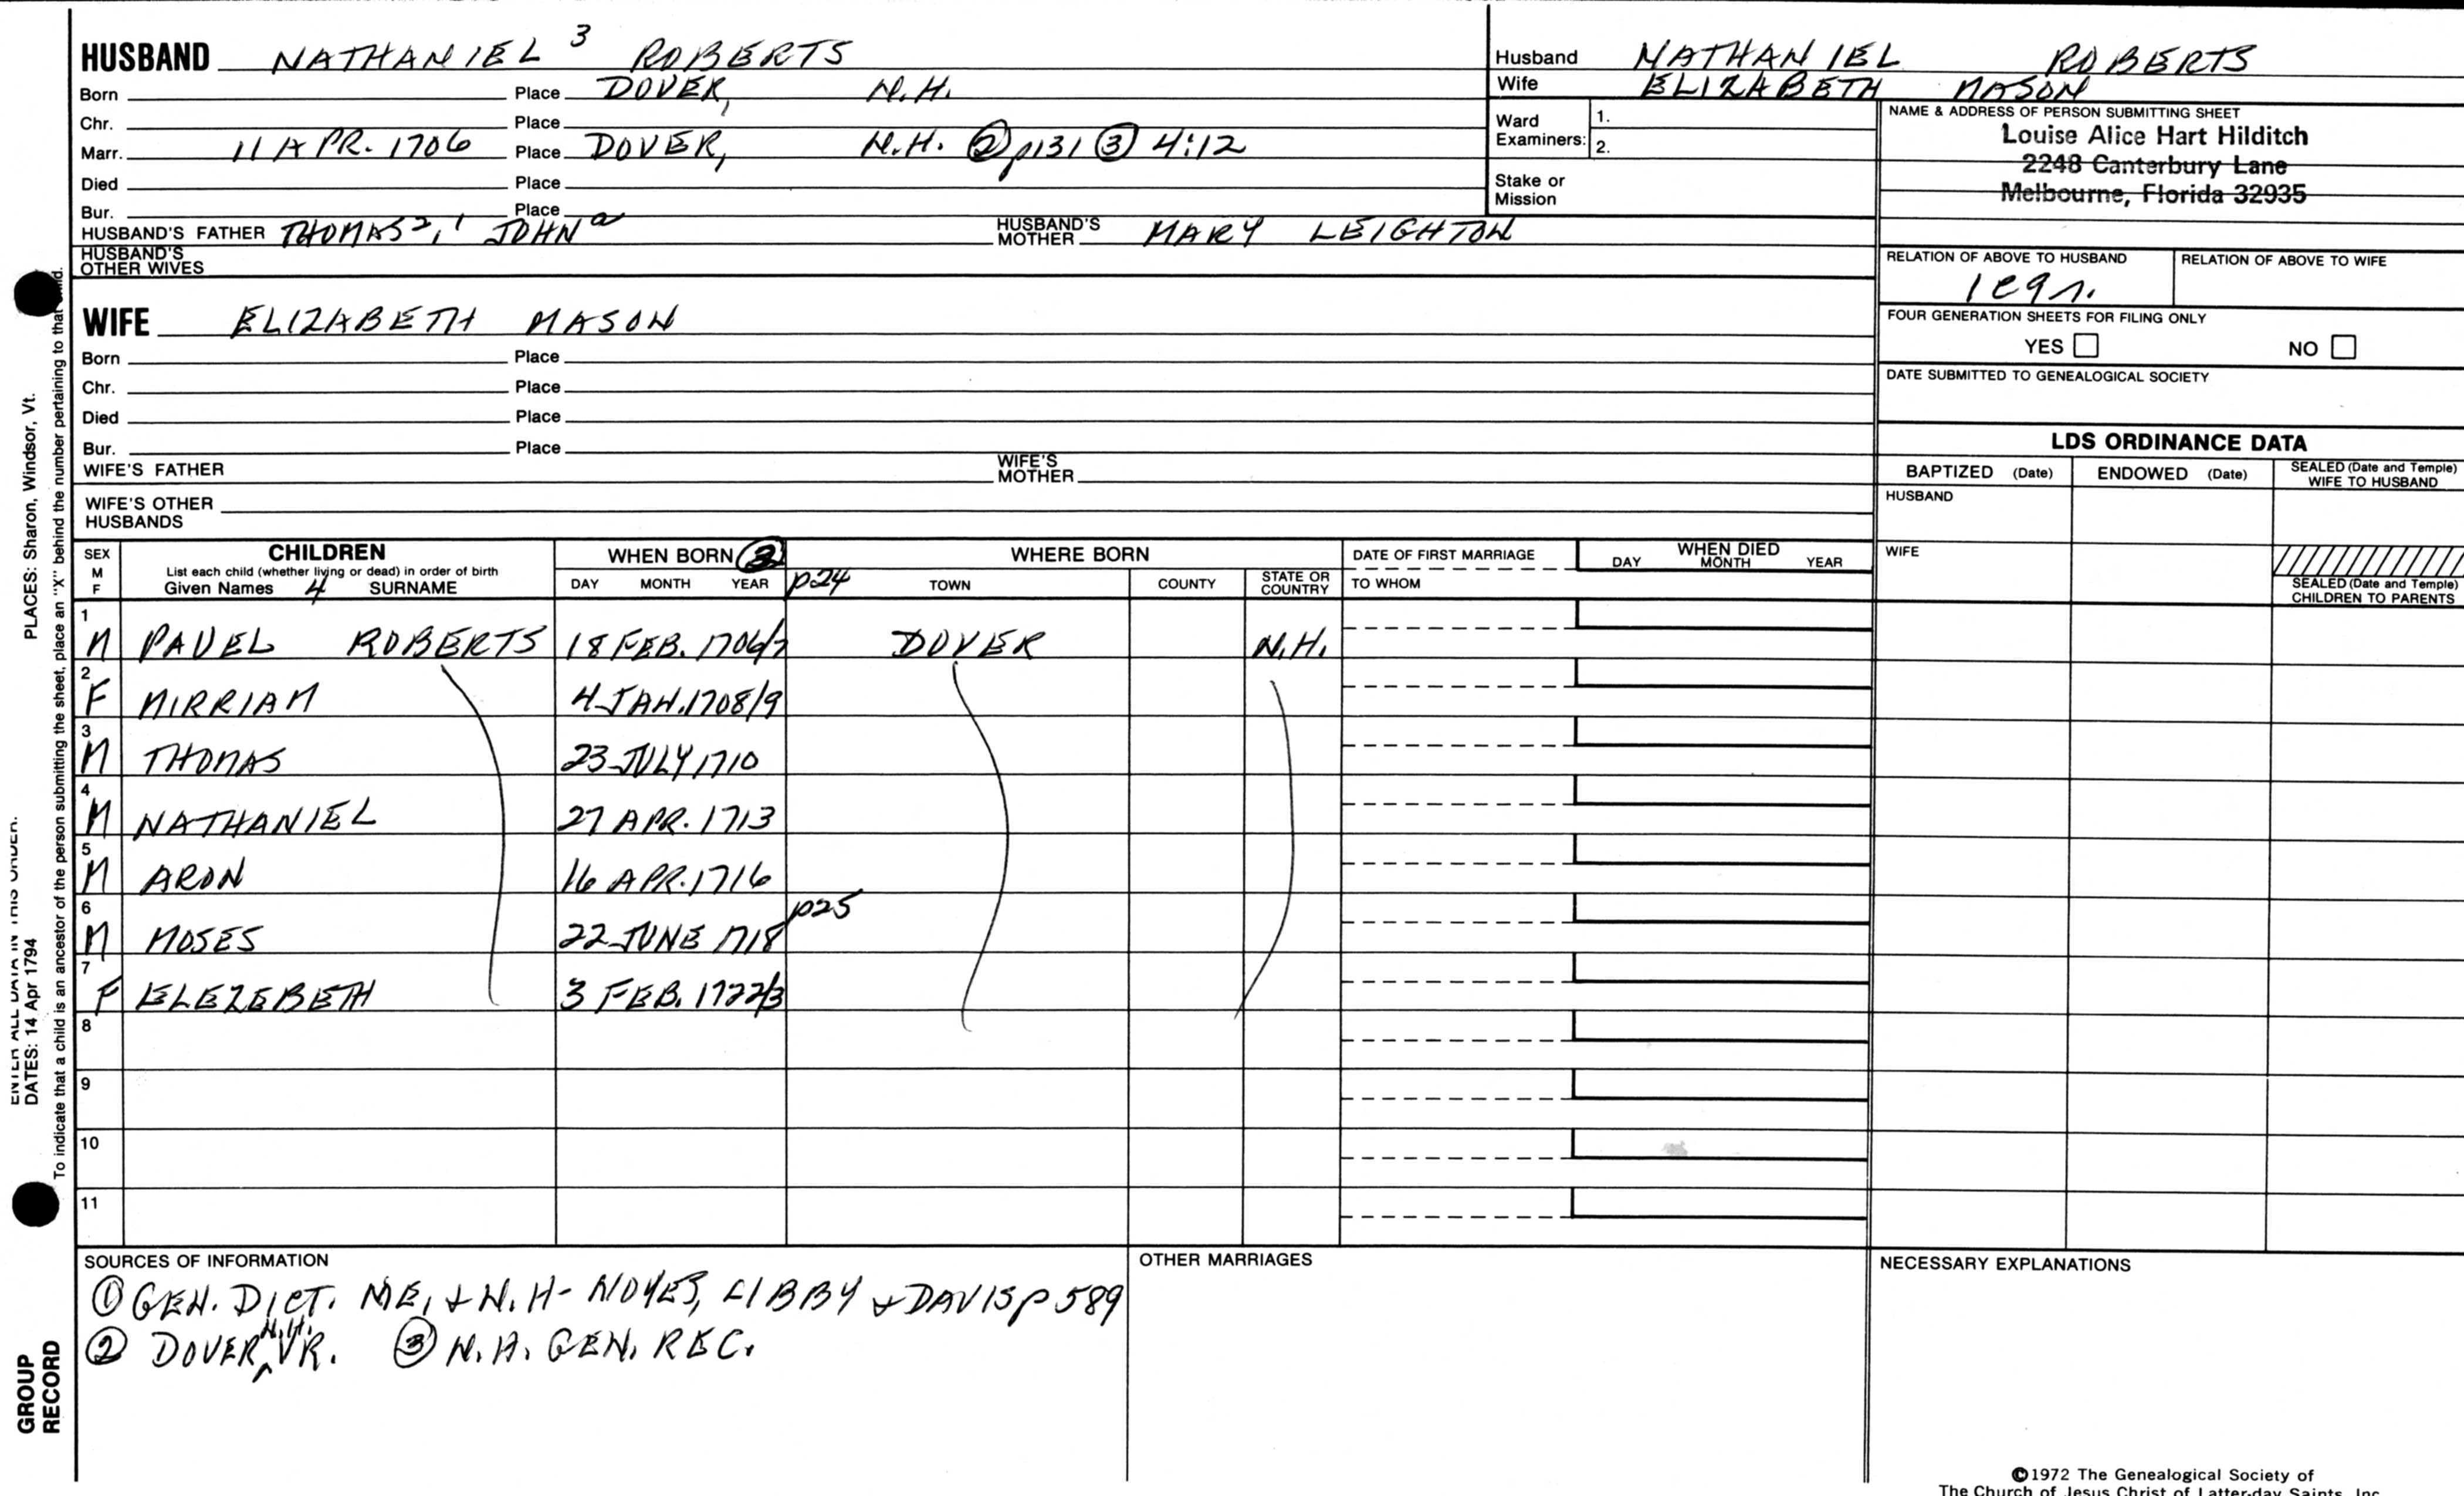 HUSBAND NATHANIEL 3 ROBERTS
Born Place DOVER, N.H.
Chr. Place
Marr. 11 APR. 1706 Place DOVER, N.H. ② p131 ③ 4:12
Died Place
Bur. Place
HUSBAND'S FATHER THOMAS 2, 1 JOHN a HUSBAND'S MOTHER MARY LEIGHTON
HUSBAND'S OTHER WIVES
WIFE ELIZABETH MASON
Born Place
Chr. Place
Died Place
Bur. Place
WIFE'S FATHER WIFE'S MOTHER
WIFE'S OTHER HUSBANDS
Husband NATHANIEL ROBERTS
Wife ELIZABETH MASON
Ward Examiners: 1.
2.
Stake or Mission
NAME & ADDRESS OF PERSON SUBMITTING SHEET
Louise Alice Hart Hilditch
2248 Canterbury Lane
Melbourne, Florida 32935
RELATION OF ABOVE TO HUSBAND RELATION OF ABOVE TO WIFE
FOUR GENERATION SHEETS FOR FILING ONLY
YES NO
DATE SUBMITTED TO GENEALOGICAL SOCIETY
LDS ORDINANCE DATA
BAPTIZED (Date) ENDOWED (Date) SEALED (Date and Temple) WIFE TO HUSBAND
HUSBAND
WIFE
SEALED (Date and Temple) CHILDREN TO PARENTS
SEX M F CHILDREN WHEN BORN ② WHERE BORN DATE OF FIRST MARRIAGE WHEN DIED
List each child (whether living or dead) in order of birth
Given Names 4 SURNAME DAY MONTH YEAR p.24 TOWN COUNTY STATE OR COUNTRY TO WHOM DAY MONTH YEAR
1 M PAUEL ROBERTS 18 FEB. 1706/7 DOVER N.H.
2 F MIRRIAM 4 JAN. 1708/9
3 M THOMAS 23 JULY 1710
4 M NATHANIEL 27 APR. 1713
5 M ARON 16 APR. 1716
6 M MOSES 22 JUNE 1718 p25
7 F ELEZEBETH 3 FEB. 1722/3
8
9
10
11
SOURCES OF INFORMATION
① GEN. DICT. ME. & N.H - NOYES, LIBBY & DAVIS p 589
② DOVER N.H. VR. ③ N.H. GEN. REC.
OTHER MARRIAGES
NECESSARY EXPLANATIONS
©1972 The Genealogical Society of
The Church of Jesus Christ of Latter-day Saints, Inc.
PLACES: Sharon, Windsor, Vt.
ENTER ALL DATA IN THIS ORDER:
DATES: 14 Apr 1794
To indicate that a child is an ancestor of the person submitting the sheet, place an "X" behind the number pertaining to that child.
GROUP RECORD